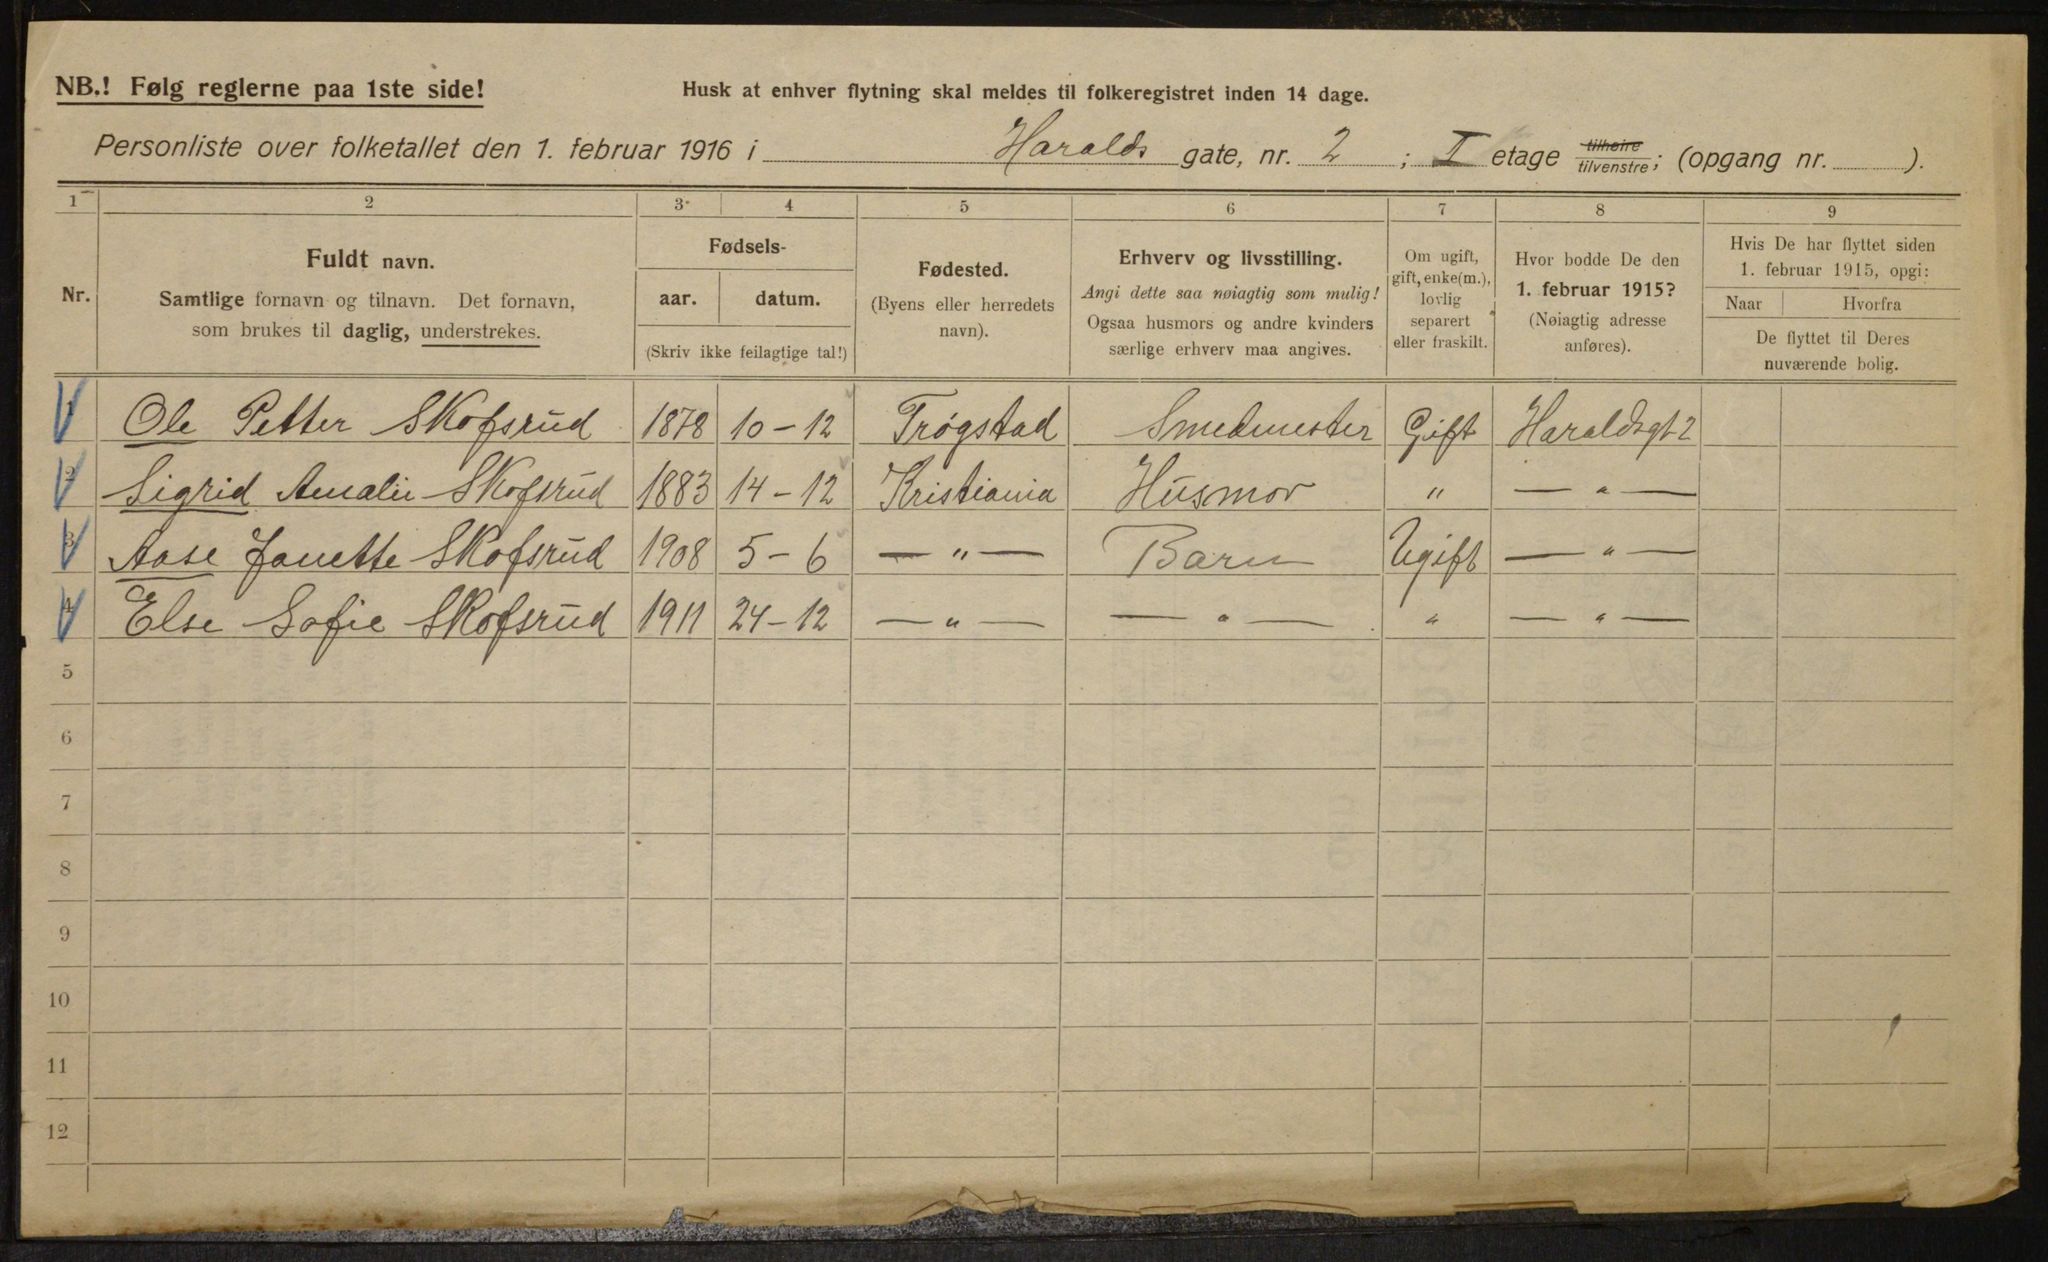 NB.! Følg reglerne paa 1ste side!
Husk at enhver flytning skal meldes til folkeregistret inden 14 dage.
Personliste over folketallet den 1. februar 1916 i Haralds gate, nr. 2 ; I etage tilhøire tilvenstre; (opgang nr. ).
1 2 3 4 5 6 7 8 9
Nr.
Fuldt navn.
Samtlige fornavn og tilnavn. Det fornavn,
som brukes til daglig, understrekes.
Fødsels-
aar. datum.
(Skriv ikke feilagtige tal!)
Fødested.
(Byens eller herredets
navn).
Erhverv og livsstilling.
Angi dette saa nøiagtig som mulig!
Ogsaa husmors og andre kvinders
særlige erhverv maa angives.
Om ugift,
gift, enke(m.),
lovlig
separert
eller fraskilt.
Hvor bodde De den
1. februar 1915?
(Nøiagtig adresse
anføres).
Hvis De har flyttet siden
1. februar 1915, opgi:
Naar Hvorfra
De flyttet til Deres
nuværende bolig.
1 Ole Petter Skofsrud 1878 10-12 Trøgstad Smedmester Gift Haraldsgt 2
2 Sigrid Amalie Skofsrud 1883 14-12 Kristiania Husmor " — " —
3 Aase Janette Skofsrud 1908 5-6 — " — Barn Ugift — " —
4 Else Sofie Skofsrud 1911 24-12 — " — — " — " — " —
5
6
7
8
9
10
11
12